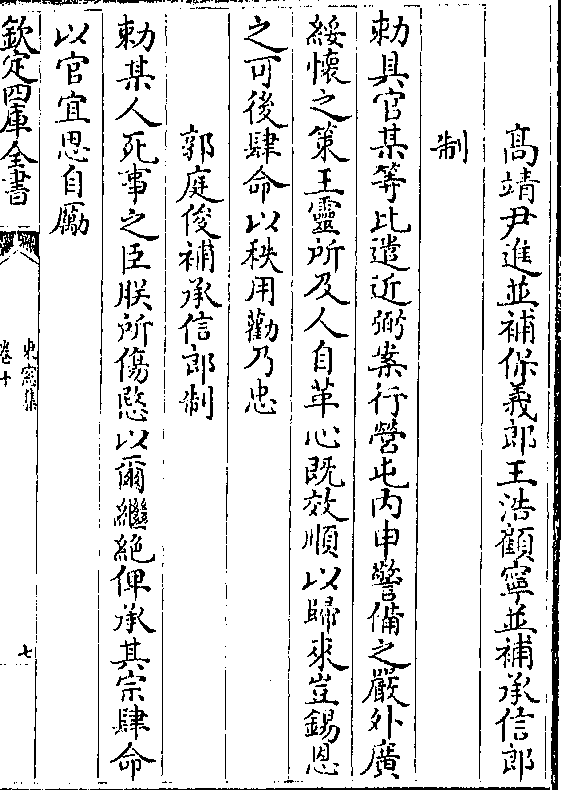 高靖尹進並補保義郎王浩顧寧並補承信郎
制
勅具官某等比遣近弼案行營屯内申警備之嚴外廣
綏懷之策王靈所及人自革心既效順以歸來豈錫恩
之可後肆命以秩用勸乃忠
郭庭俊補承信郎制
勅某人死事之臣朕所傷愍以爾繼絶俾承其宗肆命
以官宜思自勵
欽定四庫全書
東窻集
卷十
七